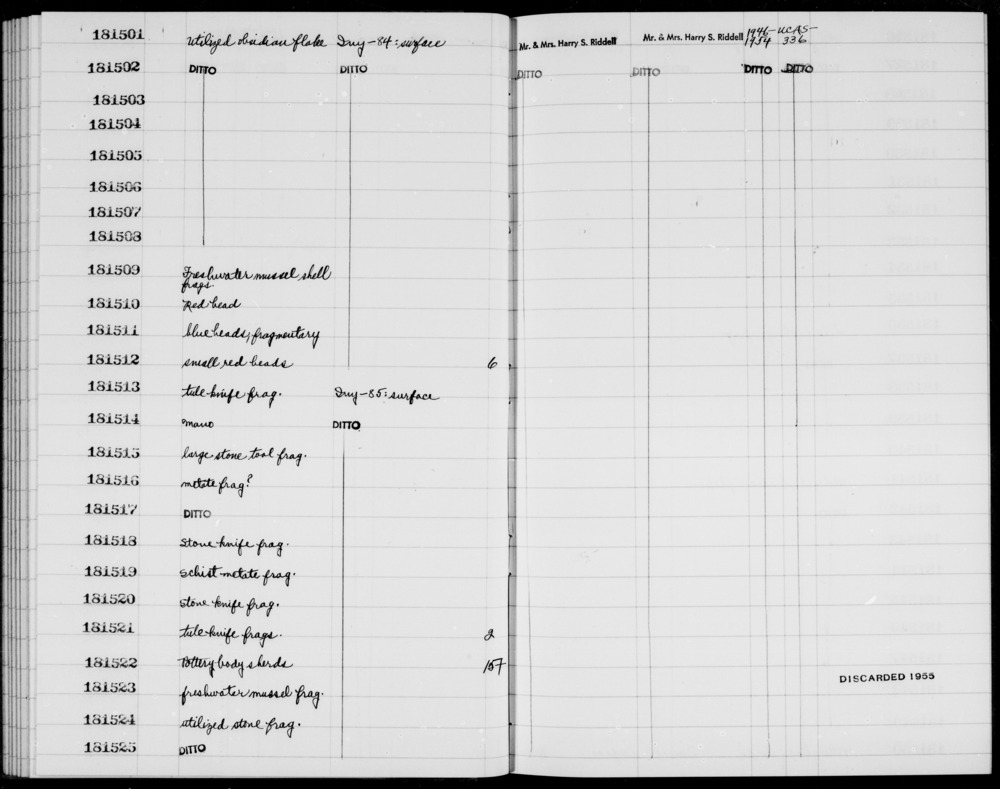 181501 utilized obsidian flake Iny-84: surface Mr. & Mrs. Harry S. Riddell Mr. & Mrs. Harry S. Riddell 1946-1954 UCAS-336
181502 DITTO DITTO DITTO DITTO DITTO DITTO
181503
181504
181505
181506
181507
181508
181509 Freshwater mussel shell
frags.
181510 Red bead
181511 blue beads, fragmentary
181512 small red beads 6
181513 tule knife frag. Iny-85: surface
181514 mano DITTO
181515 large stone tool frag.
181516 metate frag?
181517 DITTO
181518 stone knife frag.
181519 schist metate frag.
181520 stone knife frag.
181521 tule knife frags. 2
181522 Pottery body sherds 157 DISCARDED 1955
181523 freshwater mussel frag.
181524 utilized stone frag.
181525 DITTO